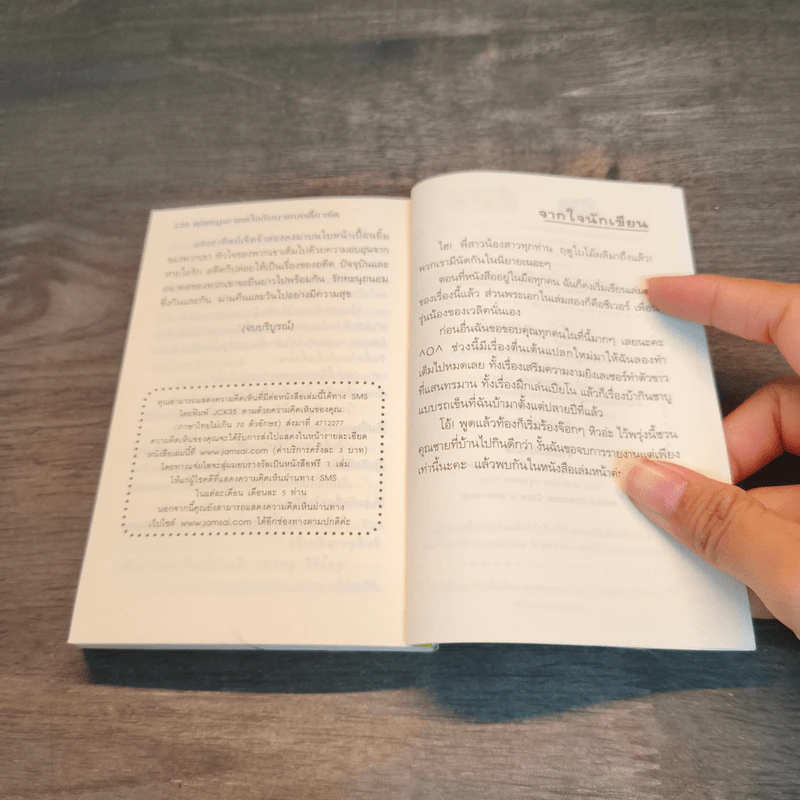 แสงอาทิตย์เจิดจ้าส่องลงมาบนใบหน้าเปื้อนยิ้ม
ของพวกเขา หัวใจของพวกเขาเต็มไปด้วยความอบอุ่นจาก
สายใยรัก อดีตก็ปล่อยให้เป็นเรื่องของอดีต ปัจจุบันและ
อนาคตของพวกเขาจะยืนยาวไปพร้อมกัน รักทะนุถนอม
ซึ่งกันและกัน ผ่านคืนและวันไปอย่างมีความสุข
(จบบริบูรณ์)
คุณสามารถแสดงความคิดเห็นที่มีต่อหนังสือเล่มนี้ได้ทาง SMS
โดยพิมพ์ JCK35 ตามด้วยความคิดเห็นของคุณ
(ภาษาไทยไม่เกิน 70 ตัวอักษร) ส่งมาที่ 4712277
ความคิดเห็นของคุณจะได้รับการส่งไปแสดงในหน้ารายละเอียด
หนังสือเล่มนี้ที่ www.jamsai.com (ค่าบริการครั้งละ 3 บาท)
โดยทางแจ่มใสจะสุ่มมอบรางวัลเป็นหนังสือฟรี 1 เล่ม
ให้แก่ผู้โชคดีที่แสดงความคิดเห็นผ่านทาง SMS
ในแต่ละเดือน เดือนละ 5 ท่าน
นอกจากนี้คุณยังสามารถแสดงความคิดเห็นผ่านทาง
เว็บไซต์ www.jamsai.com ได้อีกช่องทางตามปกติค่ะ
จากใจนักเขียน
ไฮ! พี่สาวน้องสาวทุกท่าน ฤดูใบไม้ผลิมาถึงแล้ว!
พวกเรามีนัดกันในนิยายเนอะๆ
ตอนที่หนังสืออยู่ในมือทุกคน ฉันก็คงเริ่มเขียนเล่ม
ของเรื่องนี้แล้ว ส่วนพระเอกในเล่มสองก็คือซีเวอร์ เพื่อน
รุ่นน้องของเวลิคนั่นเอง
ก่อนอื่นฉันขอขอบคุณทุกคนในที่นี้มากๆ เลยนะคะ
^O^ ช่วงนี้มีเรื่องตื่นเต้นแปลกใหม่มาให้ฉันลองทำ
เต็มไปหมดเลย ทั้งเรื่องเสริมความงามยิงเลเซอร์ทำตัวขาว
ที่แสนทรมาน ทั้งเรื่องฝึกเล่นเปียโน แล้วก็เรื่องบ้ากินชาบู
แบบรถเข็นที่ฉันบ้ามาตั้งแต่ปลายปีที่แล้ว
โอ๊! พูดแล้วท้องก็เริ่มร้องจ๊อกๆ หิวอ่ะ ไว้พรุ่งนี้ชวน
คุณชายที่บ้านไปกินดีกว่า งั้นฉันขอจบการรายงานแต่เพียง
เท่านี้นะคะ แล้วพบกันในหนังสือเล่มหน้า